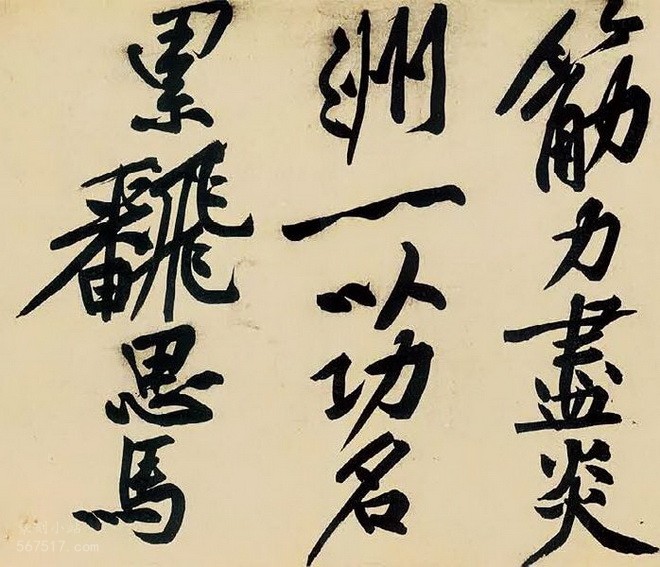 筋力盡炎
洲一以功名
累飜思馬
567517.com